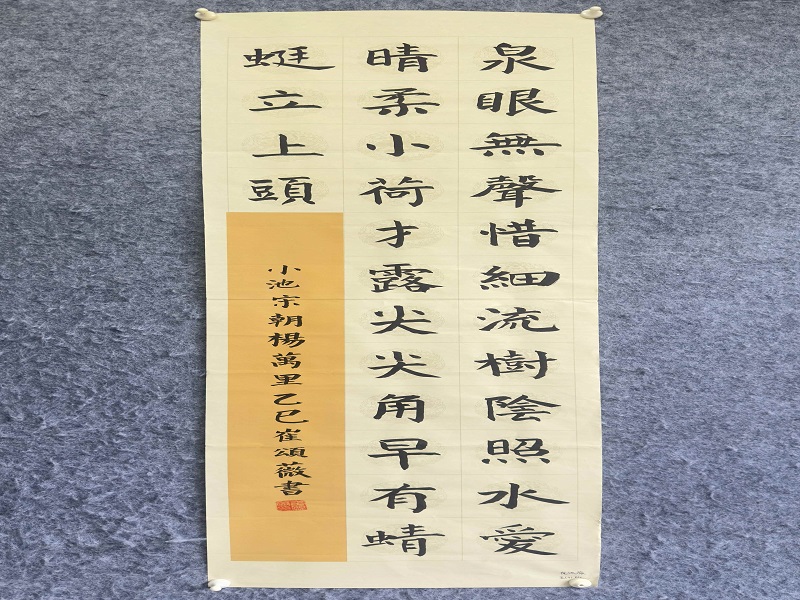 泉眼無聲惜細流樹陰照水愛
晴柔小荷才露尖尖角早有蜻
蜓立上頭
小池宋朝楊萬里乙巳崔頌薇書